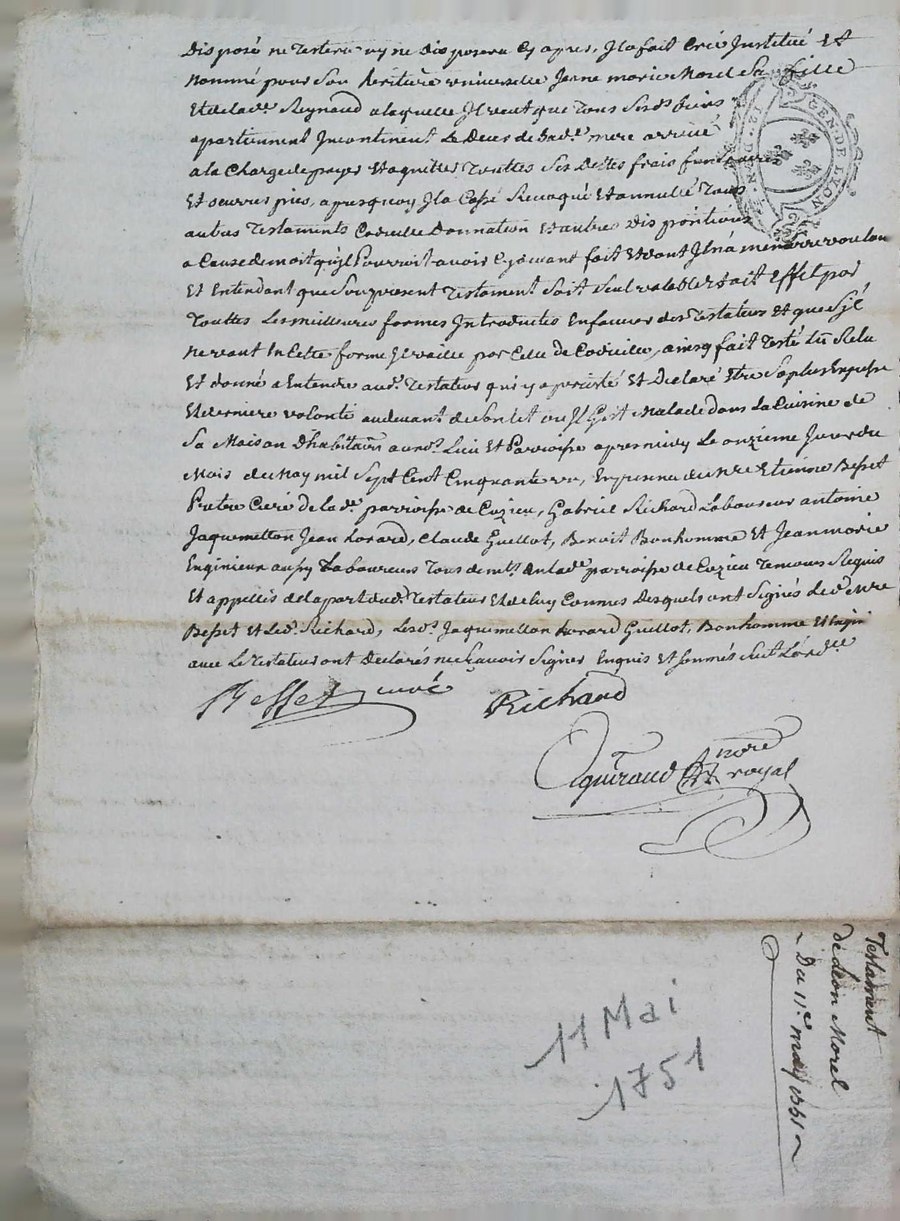 Disposé ne Testera ny ne Disposera Cy apres, Il a fait Créé Institué Et
Nommé pour Son héritiere universelle Jeane marie Morel Sa fille
Et de lad.e Reynaud a laquelle Il veut que Tous Sesd. biens
apartiennent Incontinent Le Deces de Sad.e mere arrivé
a la Charge de payer Et aquitter Touttes Ses Dettes frais funeraires
Et oeuvres pies, apres quoy Il a Cassé Revoqué Et annullé Tous
autres Testaments Codicille Donnation Et autres Dispositions
a Cause de mort qu'il Pourroit avoir Cy devant fait Et dont Il n'a memoire voulan
Et Entendant que Son present Testament Soit Seul valable Et ait Effet par
Touttes Les meilleures formes Introduites En faveur des Testateurs Et que S'il
ne vaut En Cette forme Il vaille par Celle de Codicille, ainsy fait Testé Lu Relu
Et donné a Entendre aud. Testateur qui y a percisté Et Declaré Etre Sa plus Expresse
Et derniere volonté au devant de Son Lit ou Il Gist Malade dans La Cuisine de
Sa Maison D'habitaon aud. Lieu Et Parroisse apres midy Le onzieme Jour du
Mois de May mil Sept Cent Cinquante un, En presence de m.re Etienne Besset
Pretre Curé de lad.e parroisse de Cuzieu, Gabriel Richard Laboureur antoine
Jaquemetton Jean Lorard, Claude Guillot, Benoit Bonhomme Et Jean marie
Enginieur aussy Laboureurs Tous demts. En lad.e parroisse de Cuzieu Temoins Requis
Et appellés de la part dud. Testateur Et de luy Connus Desquels ont Signés Led. m.re
Besset Et Led. Richard, Lesd.s Jaquemetton Lorard Guillot, Bonhomme Et Engini
avec Le Testateur ont Declarés ne Sçavoir Signer Enquis Et Sommés
Besset curé
Richard
quiraud nore royal
GEN. DE LYON
Testament
de Léon Morel
Du 11.e may 1751
11 Mai
1751